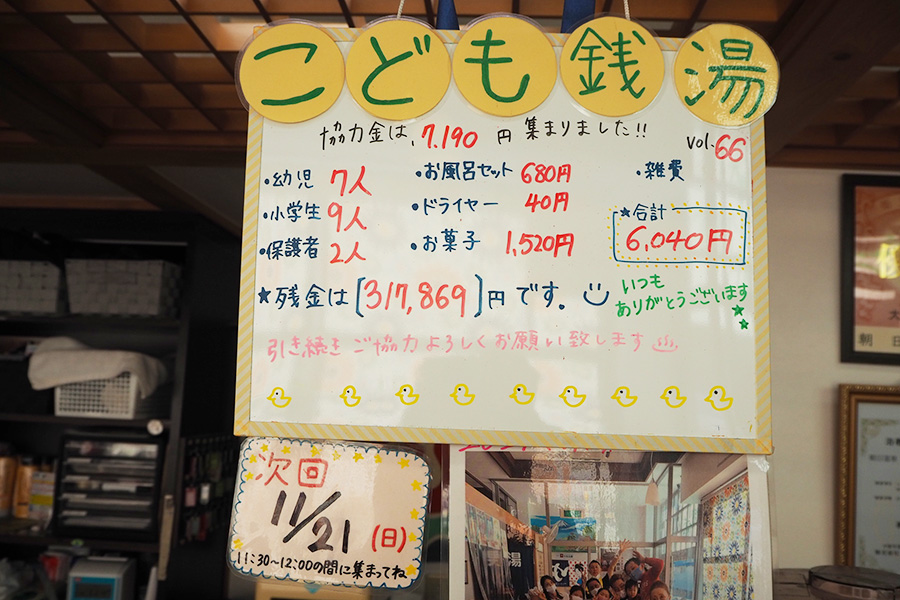 こども銭湯
協力金は、7,190円 集まりました!!
vol.66
・幼児 7人
・小学生 9人
・保護者 2人
・お風呂セット 680円
・ドライヤー 40円
・お菓子 1,520円
・雑費
★合計
6,040円
★残金は[317,869]円です。
いつも
ありがとうございます
引き続きご協力よろしくお願い致します
次回
11/21(日)
11:30~12:00の間に集まってね